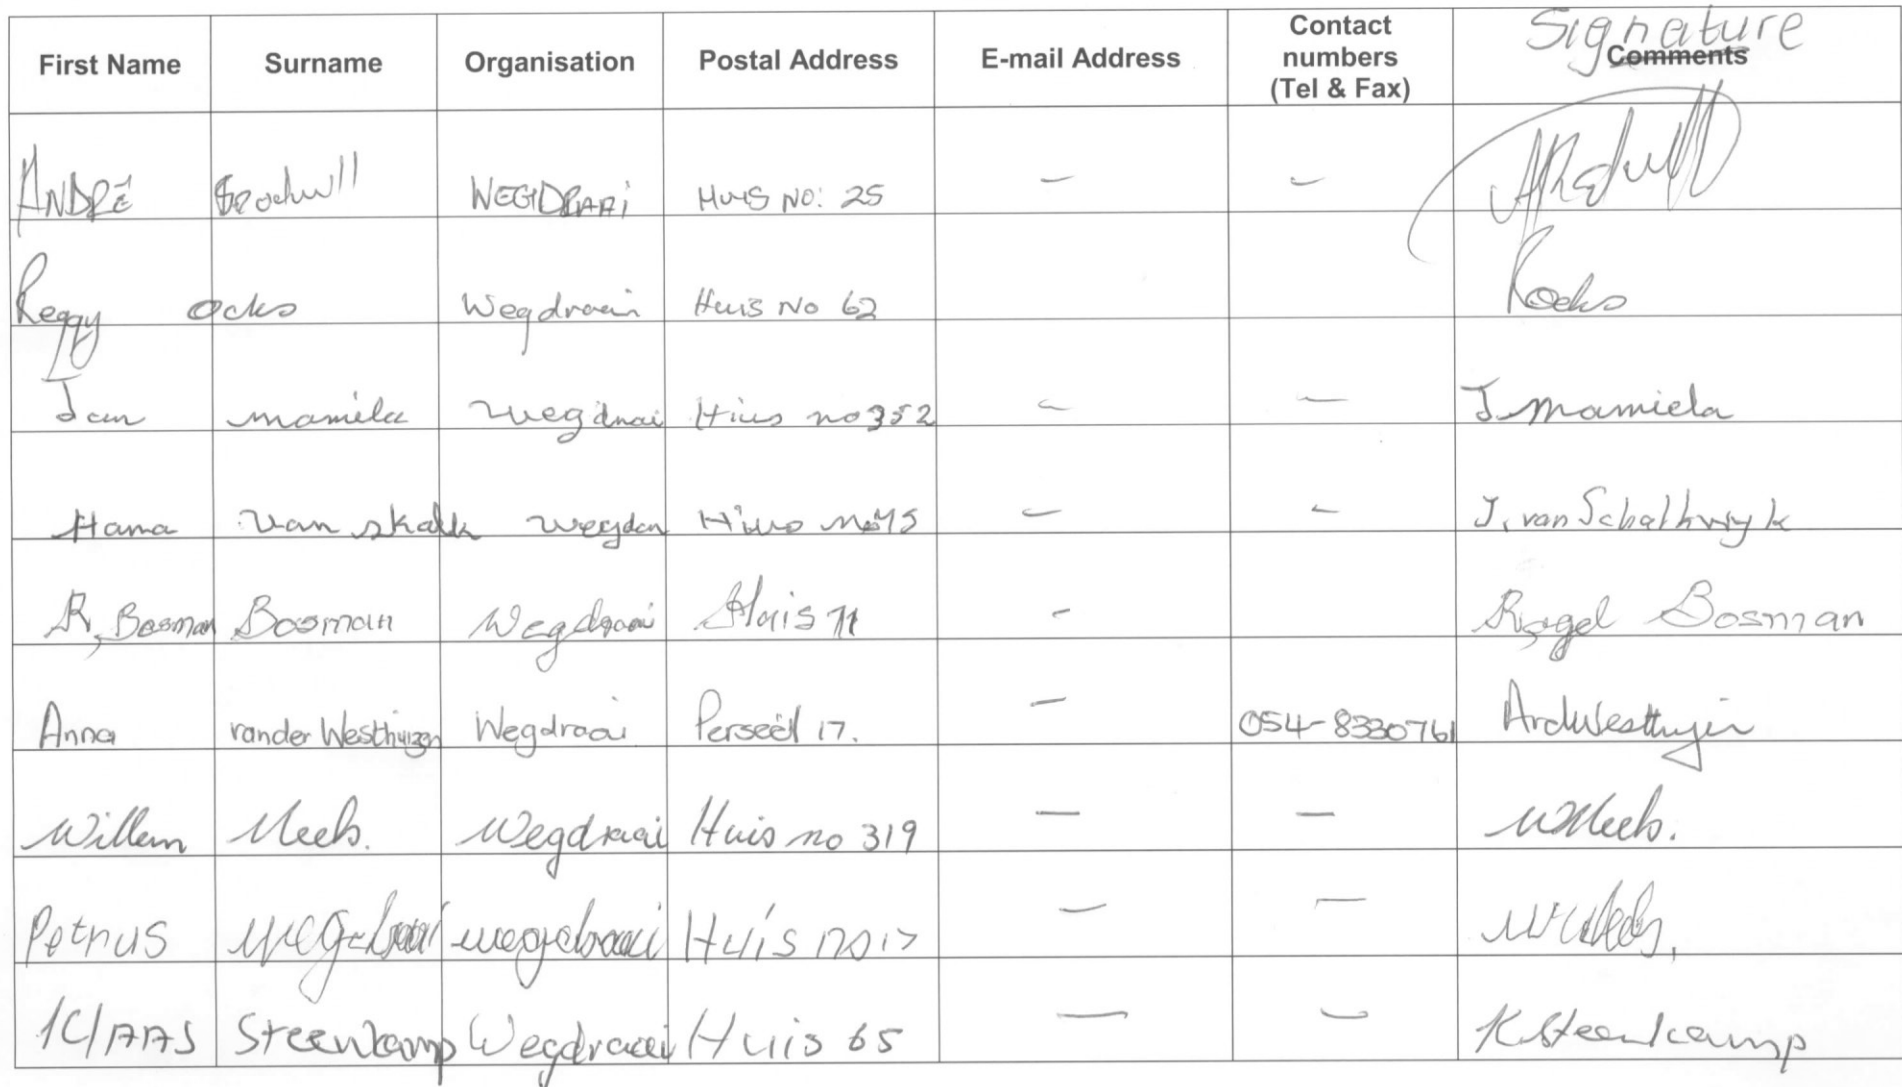 First Name Surname Organisation Postal Address E-mail Address Contact numbers (Tel & Fax) Signature Comments
ANDRÉ WEGDRAAI HUIS NO: 25 - -
Reggy Ocks Wegdraai Huis No 62 Rocks
Jan mamiela wegdraai Huis no 352 - - J. mamiela
Hama van skalk wegdan - - J. van Schalkwyk
R, Bosman Bosman Wegdraai Huis 71 - Bosman
Anna van der Westhuizen Wegdraai Perseël 17. - 054-8330761
Willem Meels. Wegdraai Huis no 319 - - WMeels.
Petrus wegdraai wegdraai Huis no 17 - -
KlAAS Steenkamp Wegdraai Huis 65 - - KSteenkamp